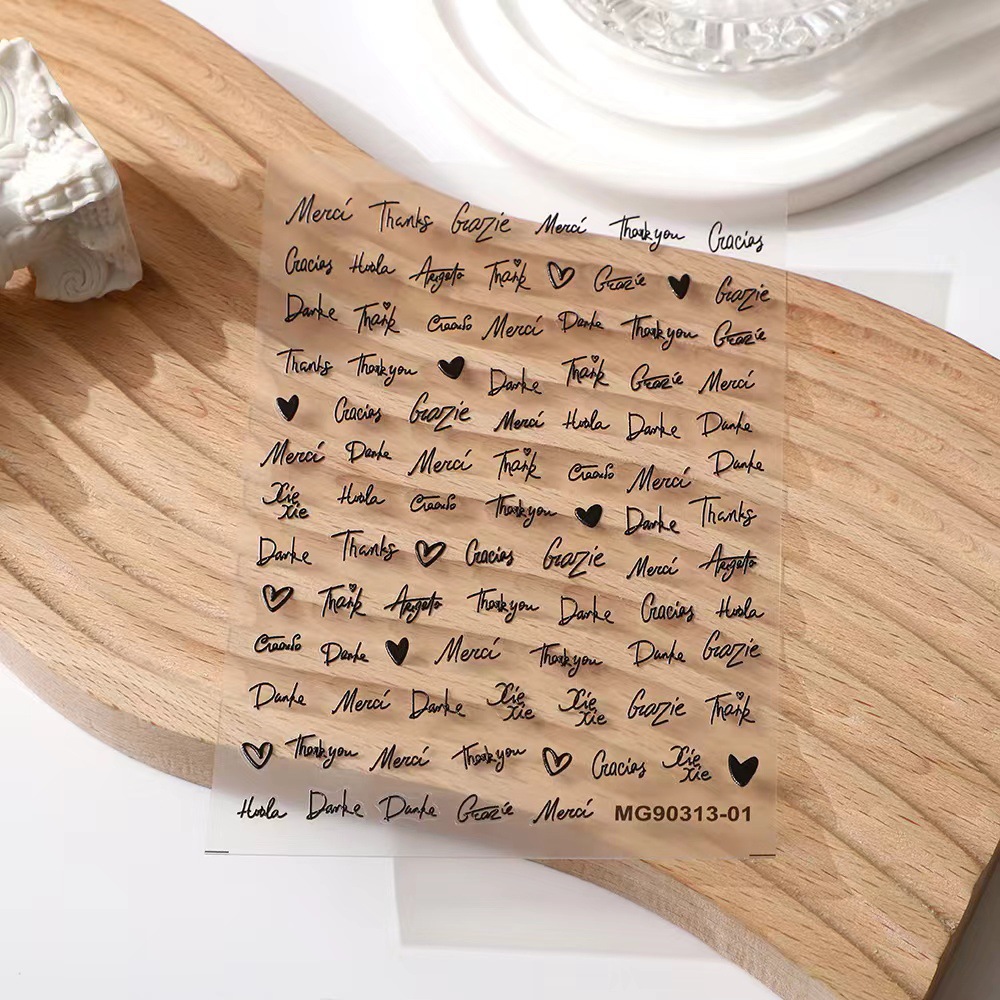 Merci Thanks Grazie Merci Thank you Gracias
Gracias Hvala Arigato Thank Grazie Grazie
Danke Thank Merci Danke Thank you Grazie
Thanks Thank you Danke Thank Grazie Merci
Gracias Grazie Merci Hvala Danke Danke
Merci Danke Merci Thank Merci Danke
Xie Xie Hvala Thank you Danke Thanks
Danke Thanks Gracias Grazie Merci Arigato
Thank Arigato Thank you Danke Gracias Hvala
Danke Merci Thank you Danke Grazie
Danke Merci Danke Xie Xie Xie Xie Grazie Thank
Thank you Merci Thank you Gracias Xie Xie
Hvala Danke Danke Grazie Merci MG90313-01